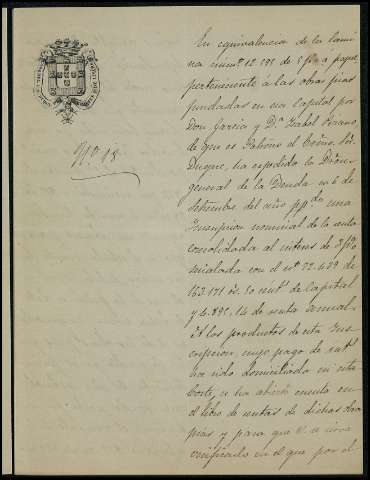 Nº 18
En equivalencia de la lámi
na númº 12.191 de 5 p% á papel
perteneciente á las obras pias
fundadas en esa capital por
Don Garcia y Dª Isabel Serrano,
de que es Patrono el Exmo. Sor.
Duque, ha expedido la Direcn
general de la Deuda en 6 de
Setiembre del año ppdo una
Inscripcion nominal de la renta
consolidada al interés de 3 p%
señalada con el nº 72.429 de
163.171 rs. 50 cents de capital
y 4.895,14 de renta anual.
A los productos de esta Ins
cripcion cuyo pago de
ha sido domiciliado en esta
Corte, se ha abierto cuenta en
el libro de rentas de dichas obras
pias y para que V. se sirva
verificarlo en el que por el